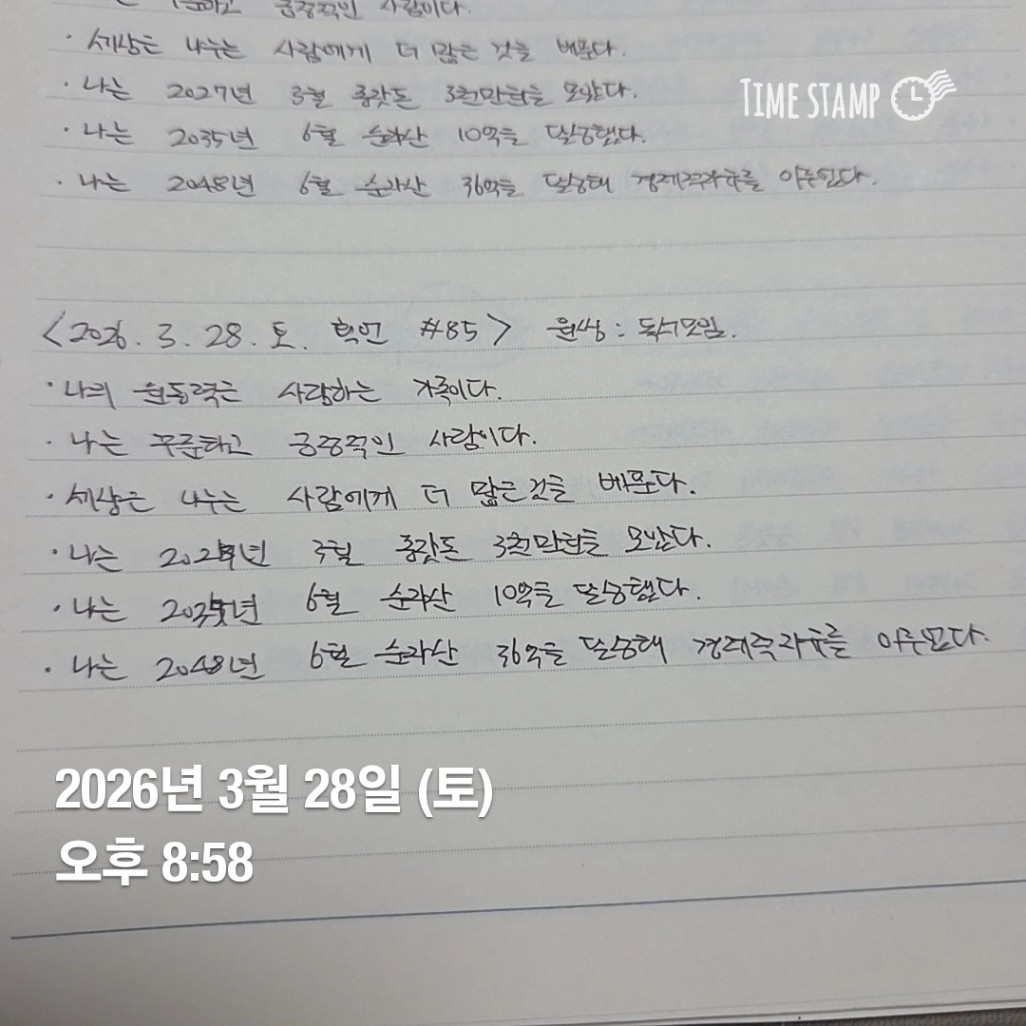 꾸준하고 긍정적인 사람이다.
· 세상은 나누는 사람에게 더 많은 것을 베푼다.
· 나는 2027년 3월 종잣돈 3천만원을 모았다.
· 나는 2035년 6월 순자산 10억을 달성했다.
· 나는 2048년 6월 순자산 36억을 달성해 경제적자유를 이루었다.
TIME STAMP
<2026. 3. 28. 토. 확언 #85> 원씽 : 독서모임.
· 나의 원동력은 사랑하는 가족이다.
· 나는 꾸준하고 긍정적인 사람이다.
· 세상은 나누는 사람에게 더 많은 것을 베푼다.
· 나는 2027년 3월 종잣돈 3천만원을 모았다.
· 나는 2035년 6월 순자산 10억을 달성했다.
· 나는 2048년 6월 순자산 36억을 달성해 경제적자유를 이루었다.
2026년 3월 28일 (토)
오후 8:58